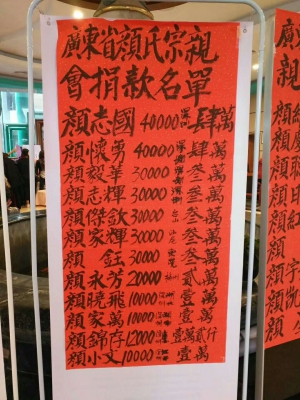 廣東省顏氏宗親
會捐款名單
顏志國 40000 深圳 肆萬
顏懷勇 40000 肆萬
顏毅華 30000 叁萬
顏志輝 30000 深圳 叁萬
顏傑欽 30000 台山 叁萬
顏家輝 30000 汕尾 叁萬
顏鈺 30000 叁萬
顏永芳 20000 梅州 貳萬
顏曉飛 10000 壹萬
顏家萬 10000 壹萬
顏錦存 12000 壹萬貳仟
顏小文 10000 壹萬